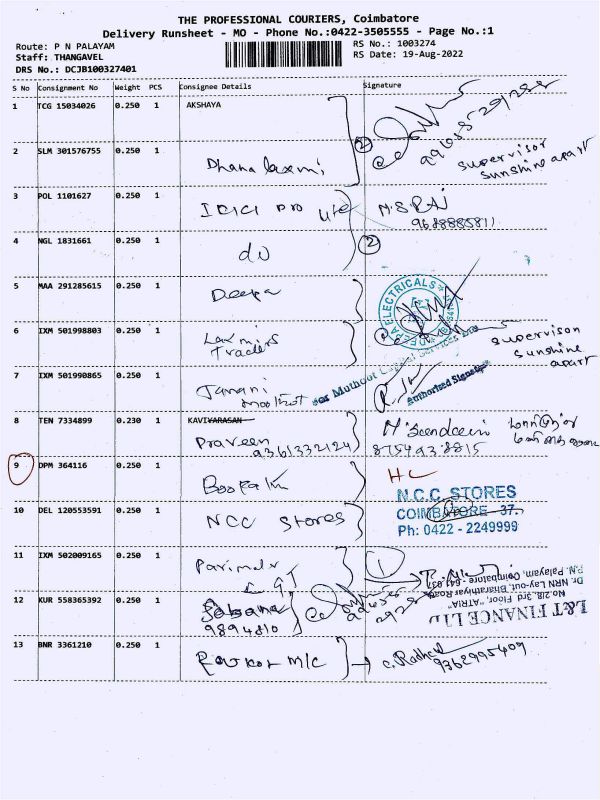 THE PROFESSIONAL COURIERS, Coimbatore
Delivery Runsheet - MO - Phone No.:0422-3505555 - Page No.:1
Route: P N PALAYAM
RS No.: 1003274
Staff: THANGAVEL
RS Date: 19-Aug-2022
DRS No.: DCJB100327401
S No Consignment No Weight PCS Consignee Details Signature
1 TCG 15034026 0.250 1 AKSHAYA
2 SLM 301576755 0.250 1 Dhana laxmi
2
supervisor
sunshine apart
3 POL 1101627 0.250 1 ICICI pro life M.S.RAJ
9688885811
4 NGL 1831661 0.250 1 do 2
5 MAA 291285615 0.250 1 Deepa
ELECTRICALS
6 IXM 501998803 0.250 1 Laxmins
Traders
supervison
sunshine
apart
7 IXM 501990865 0.250 1 Janani
for Muthoot Capital Services
Authorised Signatory
8 TEN 7334899 0.230 1 KAVIVARASAN
Praveen
9361332124
8754938815
9 DPM 364116 0.250 1
HC
10 DEL 120553591 0.250 1 NCC Stores
N.C.C. STORES
COIMBATORE - 37.
Ph: 0422 - 2249999
11 IXM 502009165 0.250 1
L & T
1
12 KUR 558365392 0.250 1 Sobana
9894810
L&T FINANCE LTD
No.28, 3rd Floor, "ATRIA"
Dr. NRN Lay-out, Bharathiyar Road,
P.N. Palayam, Coimbatore - 641 037
13 BNR 3361210 0.250 1 M/C
9362995409